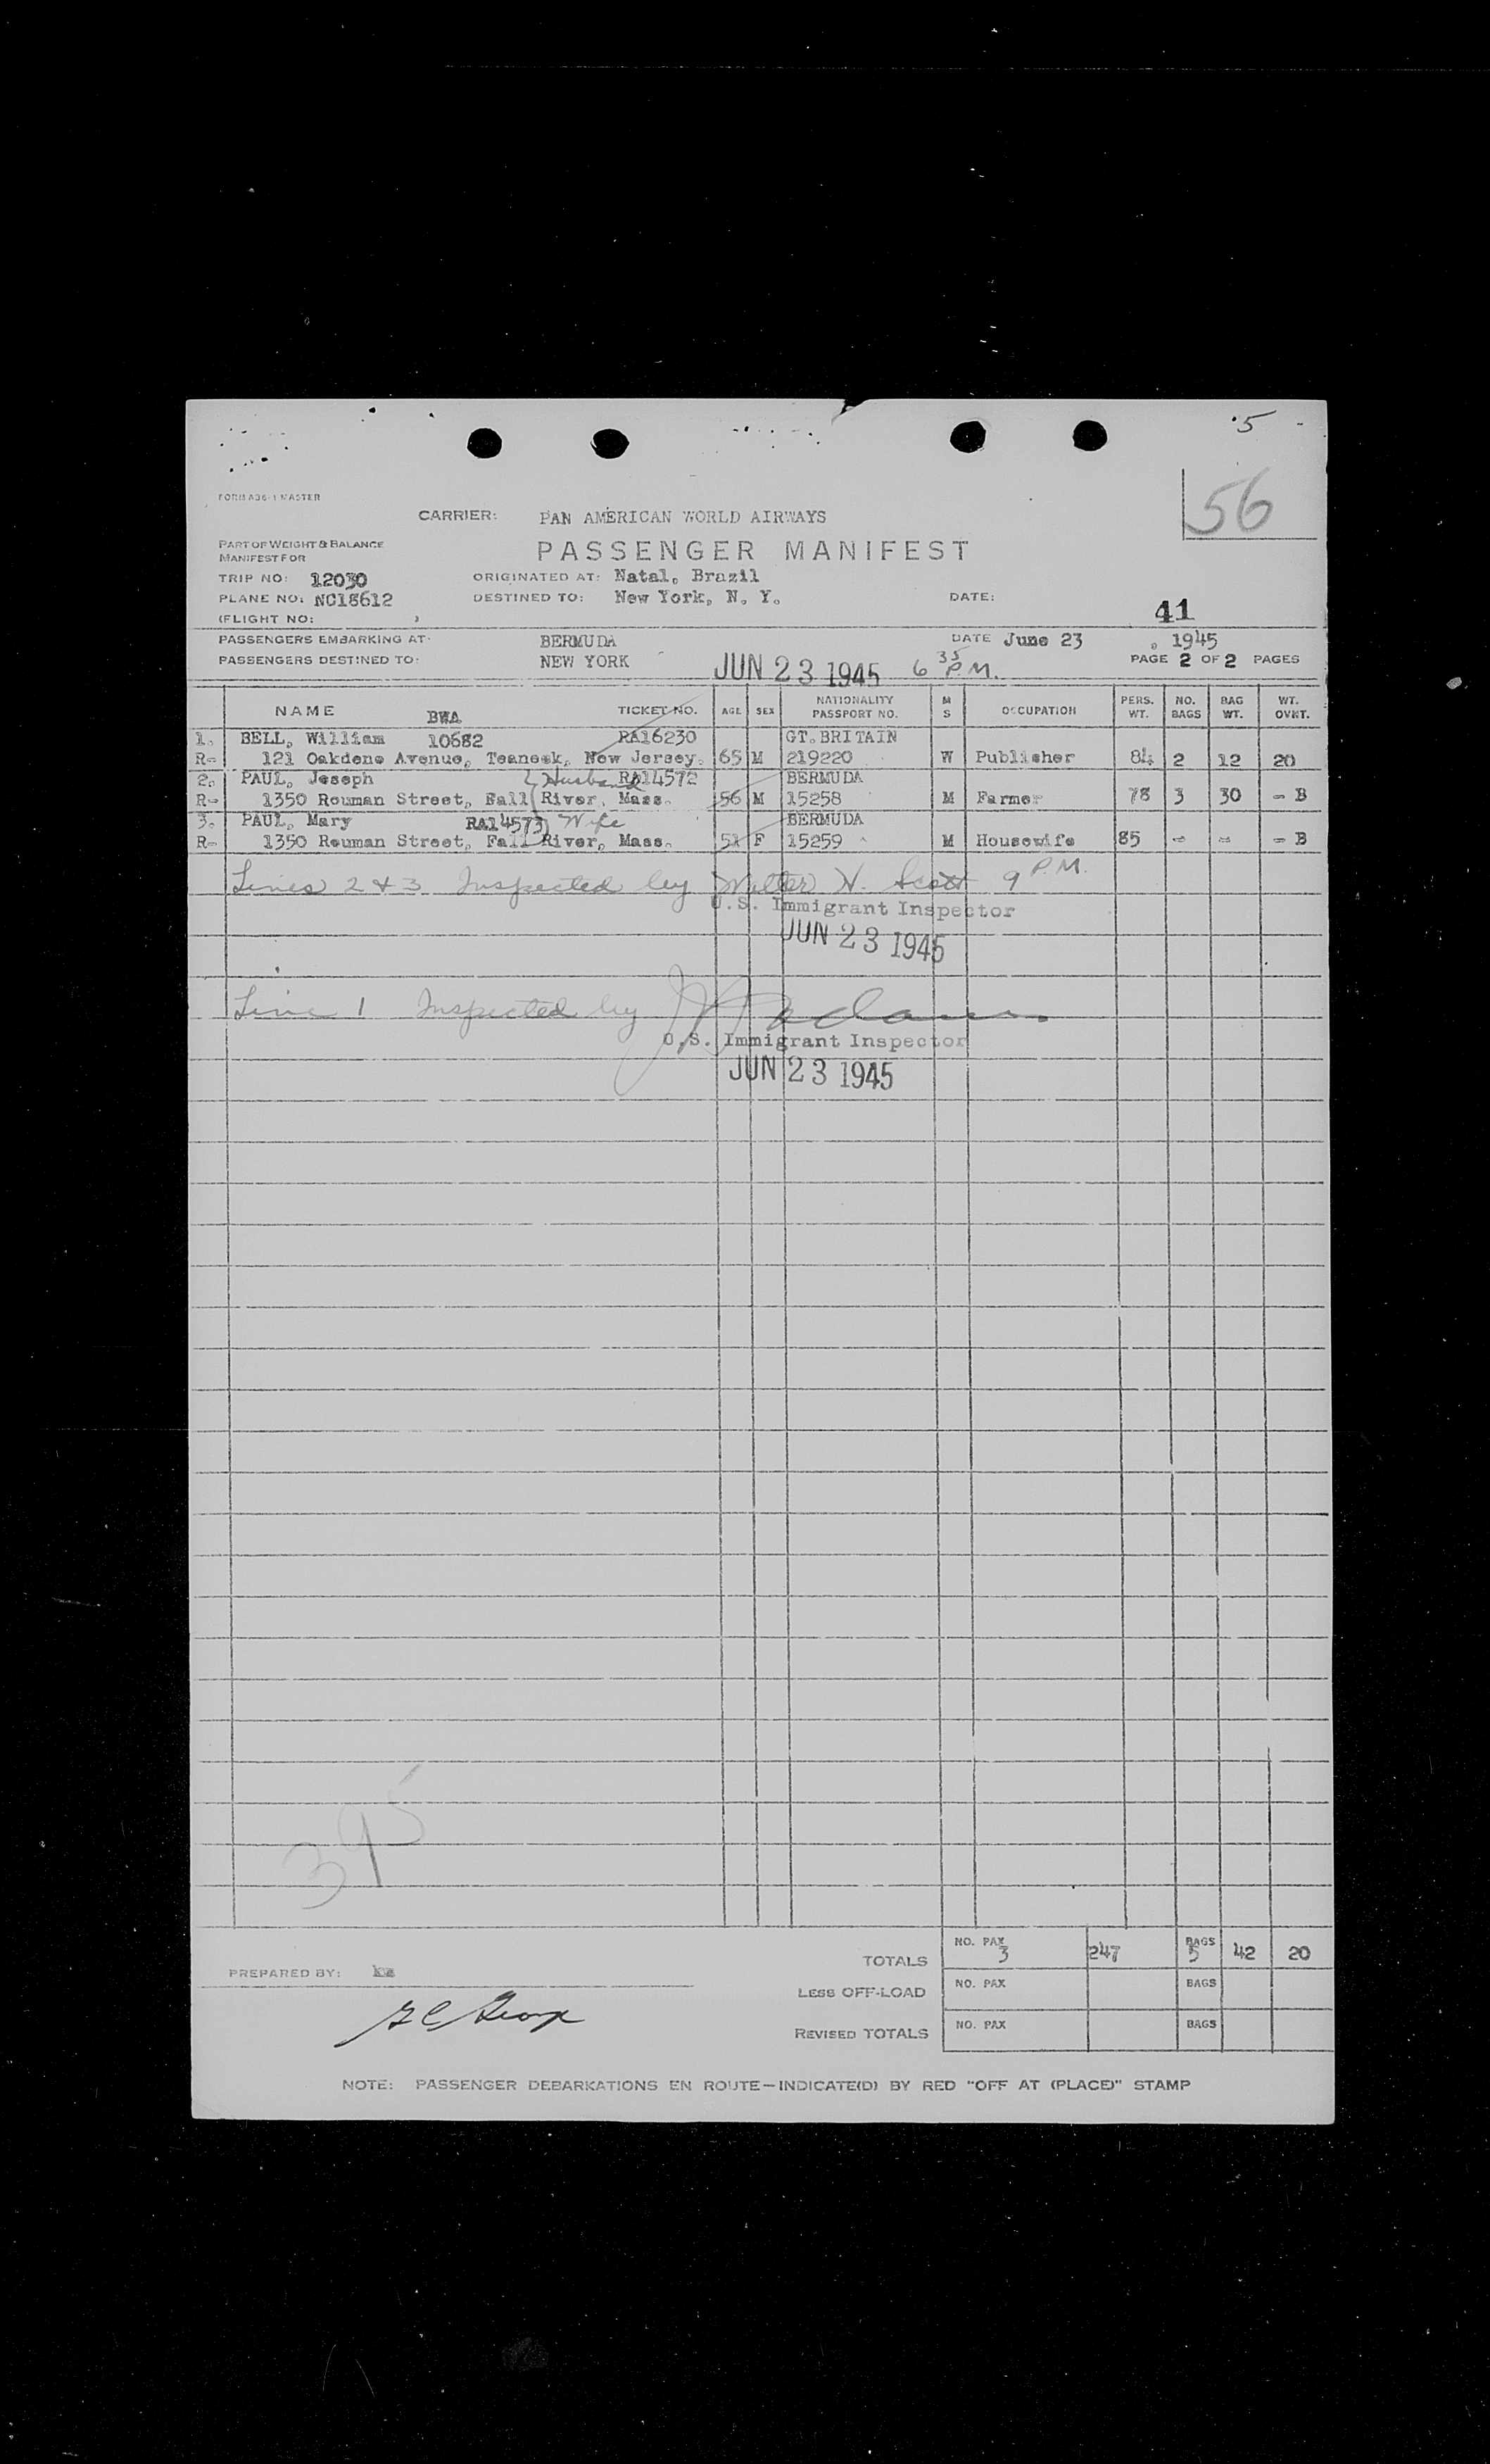 5
56
FORM A36-1 MASTER
CARRIER: PAN AMERICAN WORLD AIRWAYS
PART OF WEIGHT & BALANCE
MANIFEST FOR
PASSENGER MANIFEST
TRIP NO: 12030 ORIGINATED AT: Natal, Brazil
PLANE NO: NC18612 DESTINED TO: New York, N. Y. DATE:
(FLIGHT NO: ) 41
PASSENGERS EMBARKING AT: BERMUDA DATE June 23, 1945
PASSENGERS DESTINED TO: NEW YORK JUN 23 1945 6 35 P.M. PAGE 2 OF 2 PAGES
NAME BWA TICKET NO. AGE SEX NATIONALITY PASSPORT NO. M S OCCUPATION PERS. WT. NO. BAGS BAG WT. WT. OVWT.
1. BELL, William 10682 RA16230 GT. BRITAIN
R- 121 Oakdene Avenue, Teaneck, New Jersey. 65 M 219220 W Publisher 84 2 12 20
2. PAUL, Joseph Husband RA14572 BERMUDA
R- 1350 Rouman Street, Fall River, Mass. 56 M 15258 M Farmer 78 3 30 - B
3. PAUL, Mary RA14573 Wife BERMUDA
R- 1350 Rouman Street, Fall River, Mass. 51 F 15259 M Housewife 85 - - - B
Lines 2 & 3 Inspected by Walter H. Scott 9 P.M.
U.S. Immigrant Inspector
JUN 23 1945
Line 1 Inspected by
U.S. Immigrant Inspector
JUN 23 1945
395
TOTALS NO. PAX 3 247 BAGS 5 42 20
PREPARED BY:
LESS OFF-LOAD NO. PAX BAGS
REVISED TOTALS NO. PAX BAGS
NOTE: PASSENGER DEBARKATIONS EN ROUTE—INDICATE(D) BY RED "OFF AT (PLACE)" STAMP